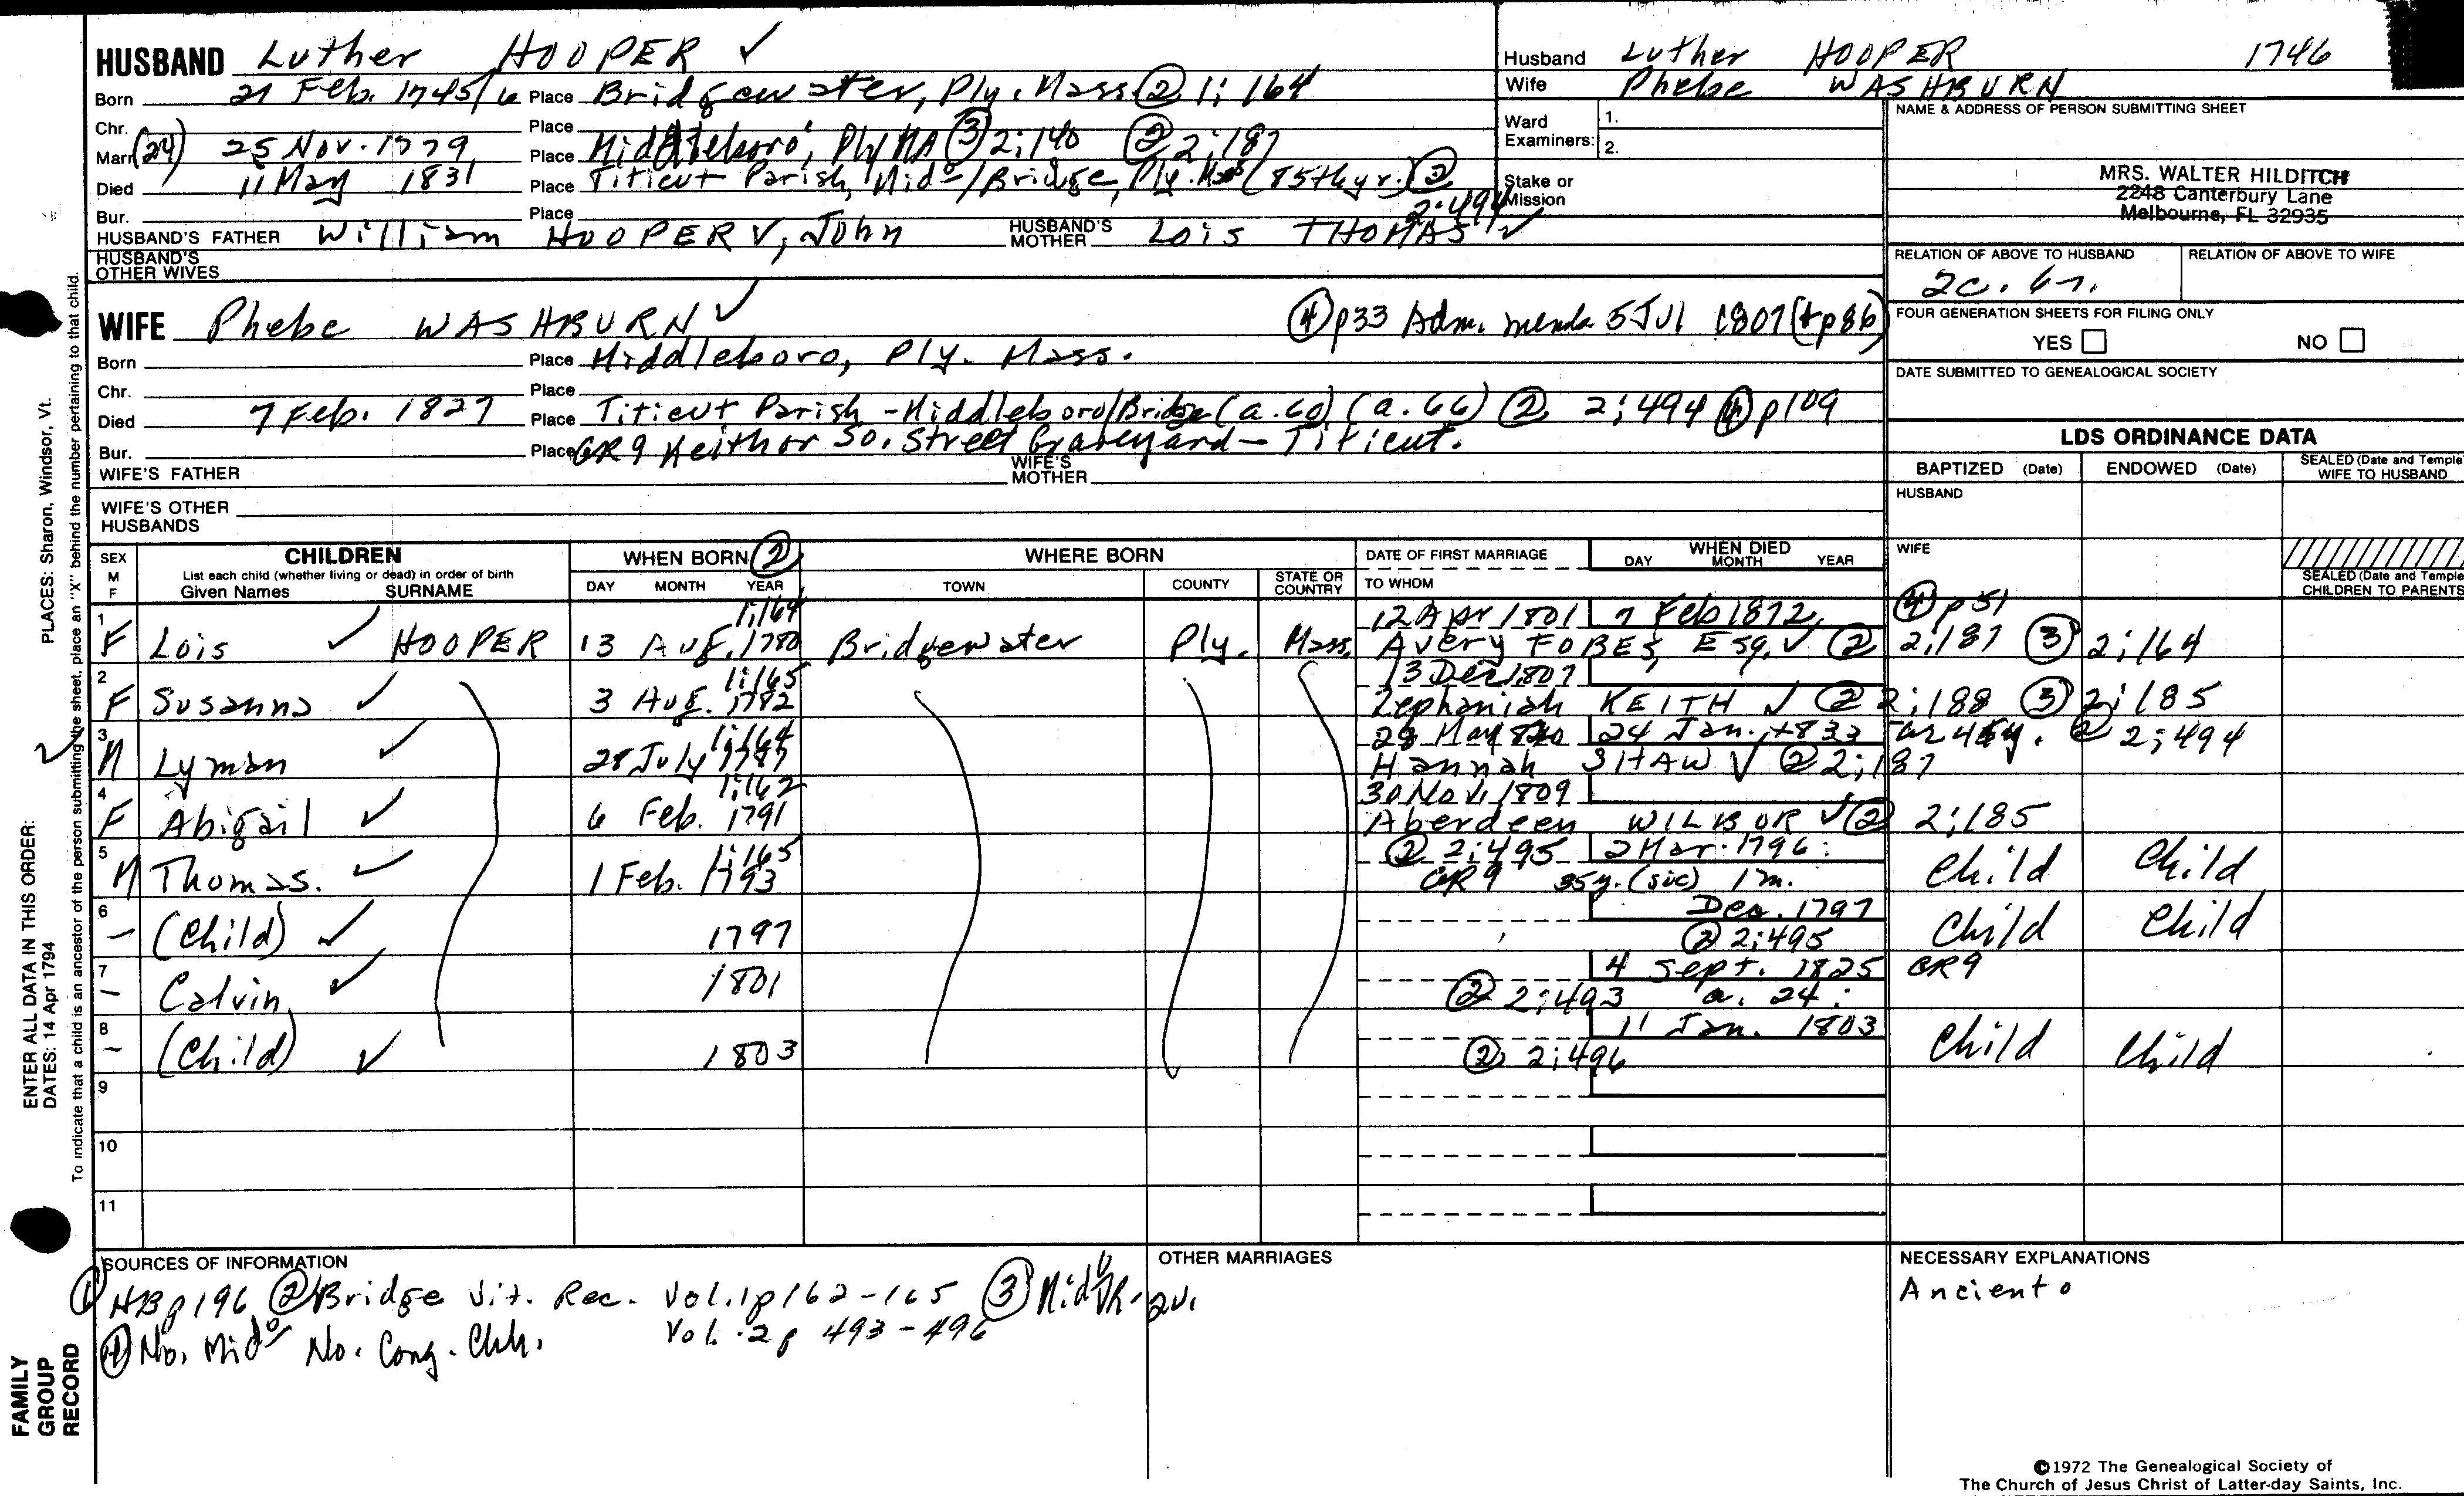 HUSBAND Luther HOOPER ✓
Born 21 Feb. 1745/6 Place Bridgewater, Ply. Mass. ② 1; 164
Chr. Place
Marr. (24) 25 Nov. 1779 Place Middleboro', Ply MA ③ 2;140 ② 2;187
Died 11 May 1831 Place Titicut Parish, Mid⁰/Bridge, Ply. Mass (85th yr.) ② 2:494
Bur. Place
HUSBAND'S FATHER William HOOPER V, John HUSBAND'S MOTHER Lois THOMAS ✓
HUSBAND'S OTHER WIVES
WIFE Phebe WASHBURN ✓ ④ p33 Adm. memb 5 Jul 1807 (+p86)
Born Place Middleboro, Ply. Mass.
Chr. Place
Died 7 Feb. 1827 Place Titicut Parish - Middleboro/Bridge (a. 60) (a. 66) ② 2;494 ④ p109
Bur. Place GR9 Keith or So. Street Graveyard — Titicut.
WIFE'S FATHER WIFE'S MOTHER
WIFE'S OTHER HUSBANDS
Husband Luther HOOPER 1746
Wife Phebe WASHBURN
Ward Examiners: 1. 2.
Stake or Mission
NAME & ADDRESS OF PERSON SUBMITTING SHEET
MRS. WALTER HILDITCH
2248 Canterbury Lane
Melbourne, FL 32935
RELATION OF ABOVE TO HUSBAND RELATION OF ABOVE TO WIFE
2c. 6r.
FOUR GENERATION SHEETS FOR FILING ONLY
YES NO
DATE SUBMITTED TO GENEALOGICAL SOCIETY
LDS ORDINANCE DATA
BAPTIZED (Date) ENDOWED (Date) SEALED (Date and Temple) WIFE TO HUSBAND
HUSBAND
WIFE
SEALED (Date and Temple) CHILDREN TO PARENTS
SEX M F CHILDREN List each child (whether living or dead) in order of birth Given Names SURNAME
WHEN BORN ② DAY MONTH YEAR
WHERE BORN TOWN COUNTY STATE OR COUNTRY
DATE OF FIRST MARRIAGE TO WHOM
WHEN DIED DAY MONTH YEAR
1 1;164 12 Apr 1801 7 Feb 1872 ④ p51
F Lois ✓ HOOPER 13 Aug. 1780 Bridgewater Ply. Mass. Avery FOBES, Esq. ✓ ② 2;187 ③ 2;164
2 1;165 13 Dec 1807
F Susanna ✓ 3 Aug. 1782 Zephaniah KEITH ✓ ② 2;188 ③ 2;185
3 1;164 24 Jan. 1833 ② 2;494
M Lyman ✓ 28 July 1787 Hannah SHAW ✓ ② 2;187
4 1;162 30 Nov. 1809
F Abigail ✓ 6 Feb. 1791 Aberdeen WILBUR ✓ ② 2;185
5 1;165 ② 2;495 2 Mar. 1796:
M Thomas. ✓ 1 Feb. 1793 GR9 35y. (sic) 1m. Child Child
6 Dec. 1797
— (Child) ✓ 1797 ② 2;495 Child Child
7 4 Sept. 1825 GR9
— Calvin ✓ 1801 ② 2;493 a. 24:
8 11 Jan. 1803
— (Child) ✓ 1803 ② 2;496 Child Child
9
10
11
SOURCES OF INFORMATION
① HB p196 ② Bridge Vit. Rec. Vol. 1 p162-165 ③ Mid⁰ VR - 2v.
Vol. 2 p 493-496
④ No. Mid⁰ No. Cong. Chh.
OTHER MARRIAGES
NECESSARY EXPLANATIONS
Ancient⁰
©1972 The Genealogical Society of
The Church of Jesus Christ of Latter-day Saints, Inc.
PLACES: Sharon, Windsor, Vt.
ENTER ALL DATA IN THIS ORDER:
DATES: 14 Apr 1794
To indicate that a child is an ancestor of the person submitting the sheet, place an "X" behind the number pertaining to that child.
FAMILY
GROUP
RECORD